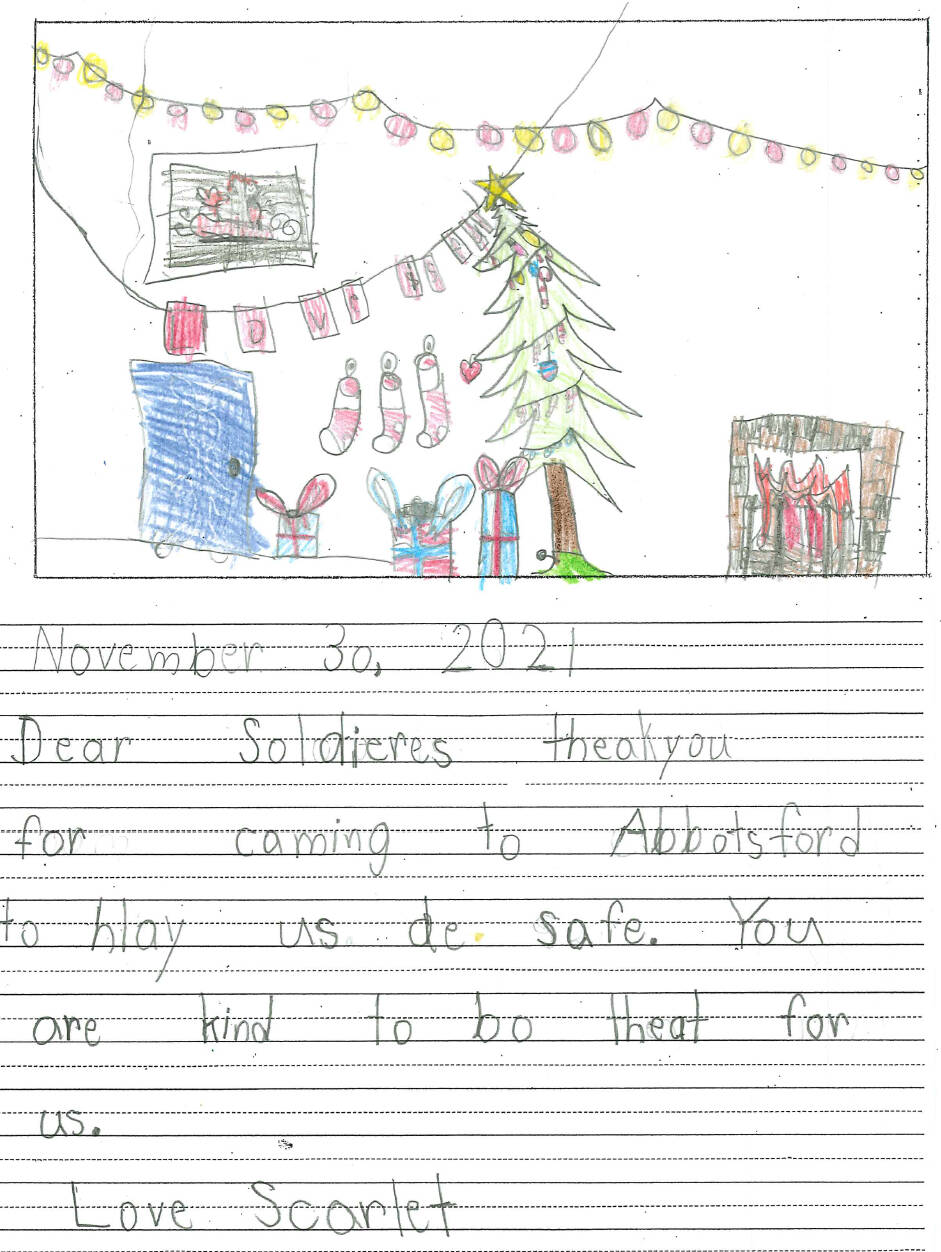 November 30, 2021
Dear Soldieres theakyou
for caming to Abbotsford
to hlay us de safe. You
are kind to bo theat for
us.
Love Scarlet